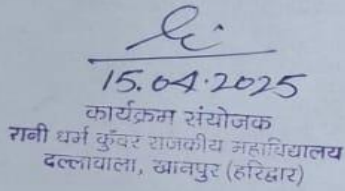 15.04.2025
कार्यक्रम संयोजक
रानी धर्म कुँवर राजकीय महाविद्यालय
दल्लावाला, खानपुर (हरिद्वार)